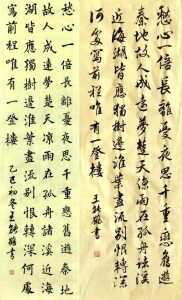 愁心一倍長離憂夜思千重戀舊遊
秦地故人成遠夢楚天涼雨在孤舟諸溪
近海潮皆應獨樹邊淮葉盡流別恨轉深
何處寫前程唯有一登樓
王 書
愁心一倍長離憂夜思千重戀舊遊秦地
故人成遠夢楚天涼雨在孤舟諸溪近海
潮皆應獨樹邊淮葉盡流別恨轉深何處
寫前程唯有一登樓
乙巳初冬王 書